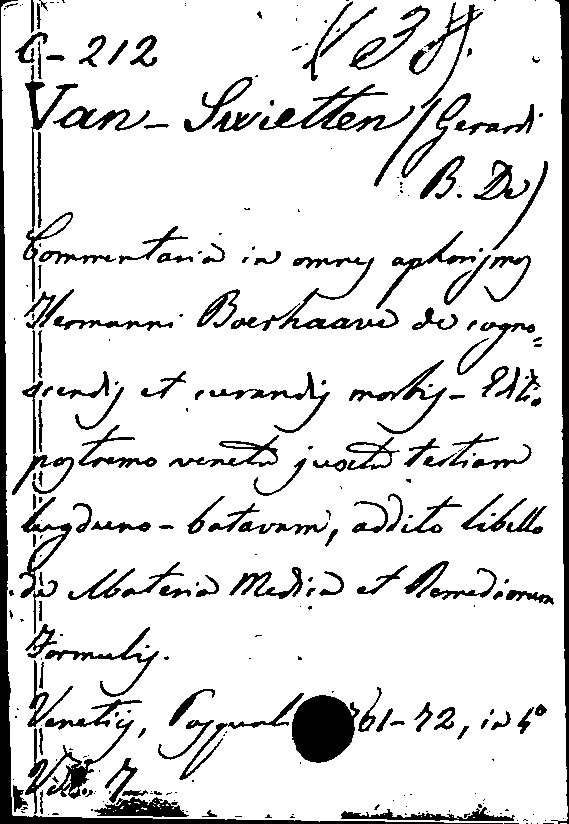 C-212
Van-Swietten (Gerardi
B. De)
Commentaria in omnes aphorismos
Hermanni Boerhaave de cogno=
scendis et curandis morbis- Editio
postremo veneta juxta tertiam
lugduno-batavam, addito libello
de Materia Medica et Remediorum
Formulis.
Venetiis, Pasquali 761-72, in 4º
7